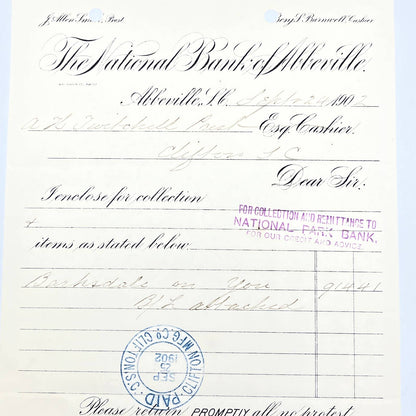 J. Allen Smith, Prest. Benj. S. Barnwell, Cashier
The National Bank of Abbeville.
Abbeville, S.C. Sept 24 1902
A H Twitchell Prest Esq. Cashier.
Clifton S C
Dear Sir:
I enclose for collection
FOR COLLECTION AND REMITTANCE TO
NATIONAL PARK BANK.
FOR OUR CREDIT AND ADVICE
items, as stated below.
Barksdale on You 91441
B/L attached
CLIFTON MFG. CO. CLIFTON S.C.
SEP
25
1902
PAID
Please return PROMPTLY all no protest